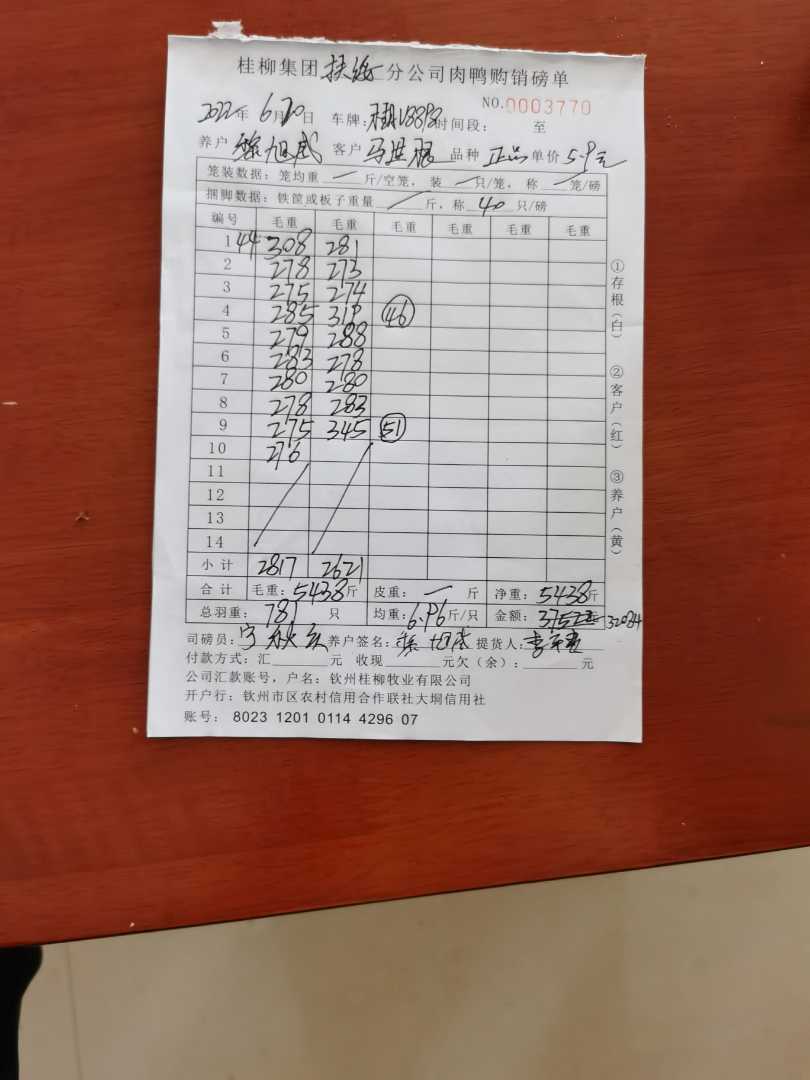 桂柳集团扶绥分公司肉鸭购销磅单
NO.0003770
2022年6月20日 车牌: 时间段: 至
养户 徐旭成 客户 马进 品种 正品 单价 5.9元
笼装数据: 笼均重 一 斤/空笼, 装 一 只/笼, 称 一 笼/磅
捆脚数据: 铁筐或板子重量 斤, 称 40 只/磅
编号 毛重 毛重 毛重 毛重 毛重 毛重
1 44 308 281
2 278 273
3 275 274
4 285 319 46
5 279 288
6 283 278
7 280 280
8 278 283
9 275 345 51
10 276
11
12
13
14
小计 2817 2621
合计 毛重: 5438斤 皮重: 一 斤 净重: 5438斤
总羽重: 781 只 均重: 6.96斤/只 金额: 32084
司磅员: 养户签名: 徐旭成 提货人:
付款方式: 汇 元 收现 元欠(余): 元
公司汇款账号, 户名: 钦州桂柳牧业有限公司
开户行: 钦州市区农村信用合作联社大垌信用社
账号: 8023 1201 0114 4296 07
①存根(白) ②客户(红) ③养户(黄)